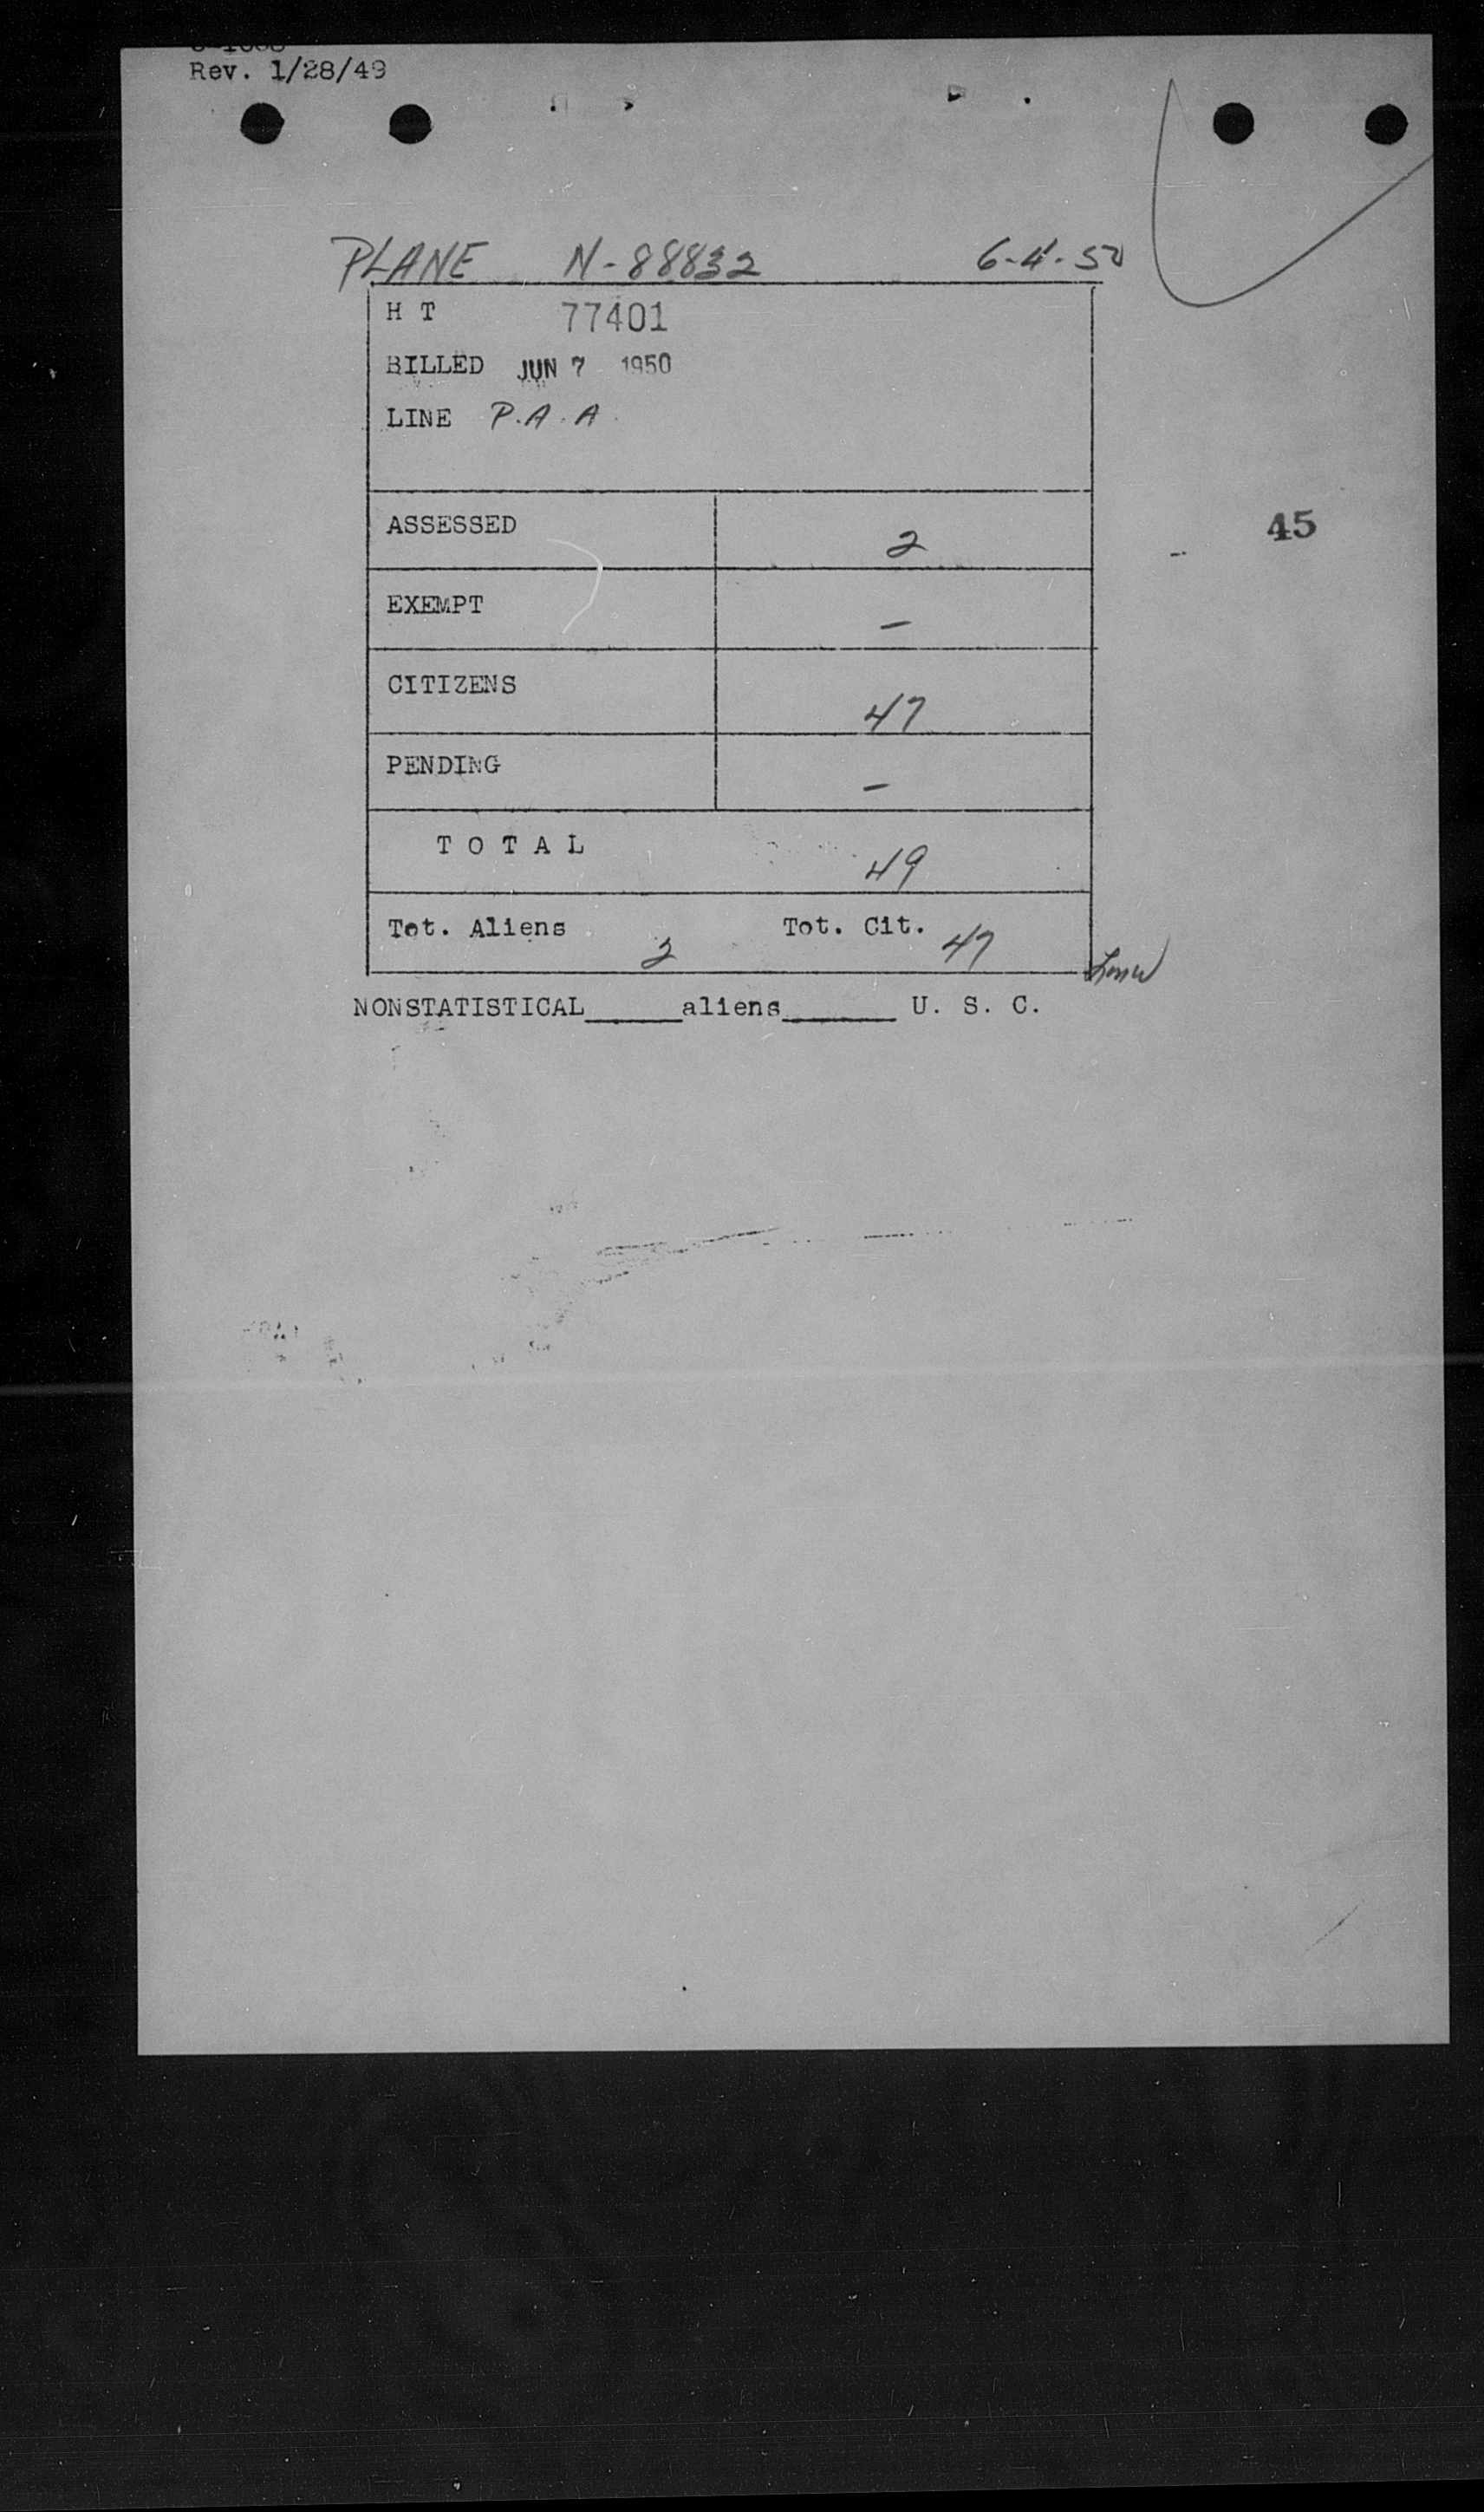 Rev. 1/28/49
PLANE N-88832 6-4-50
H T 77401
BILLED JUN 7 1950
LINE P.A.A.
ASSESSED 2
45
EXEMPT -
CITIZENS 47
PENDING -
T O T A L 49
Tot. Aliens 2 Tot. Cit. 47
NONSTATISTICAL_____aliens______ U. S. C.